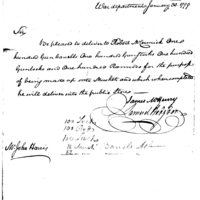 War department January 30. 1799
Sir
Be pleased to deliver to Robert McCormick One
hundred Gunbarrells One hundred Gunstocks One hundred
Gunlocks and One hundred Ramrods for the purpose
of being made up into Muskets and which when completed
he will deliver into the public Stores
James McHenry
Samuel Hodgdon
100 Locks
100
100
Mr. John Harris